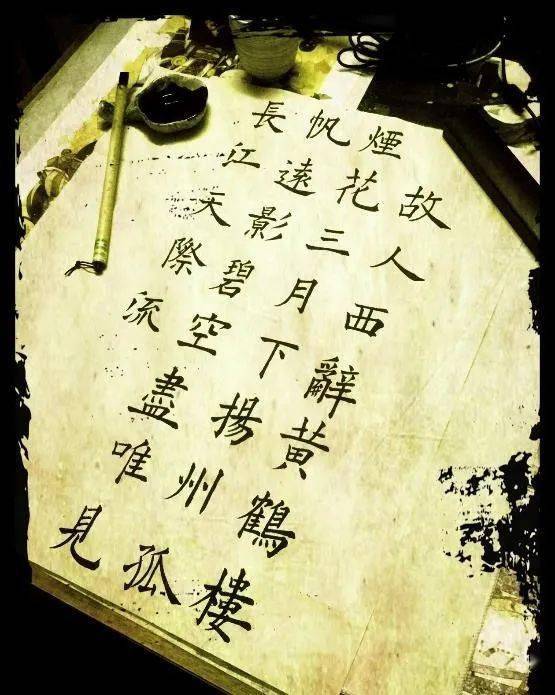 故人西辭黄鶴樓
煙花三月下揚州孤
帆遠影碧空盡唯見
長江天際流